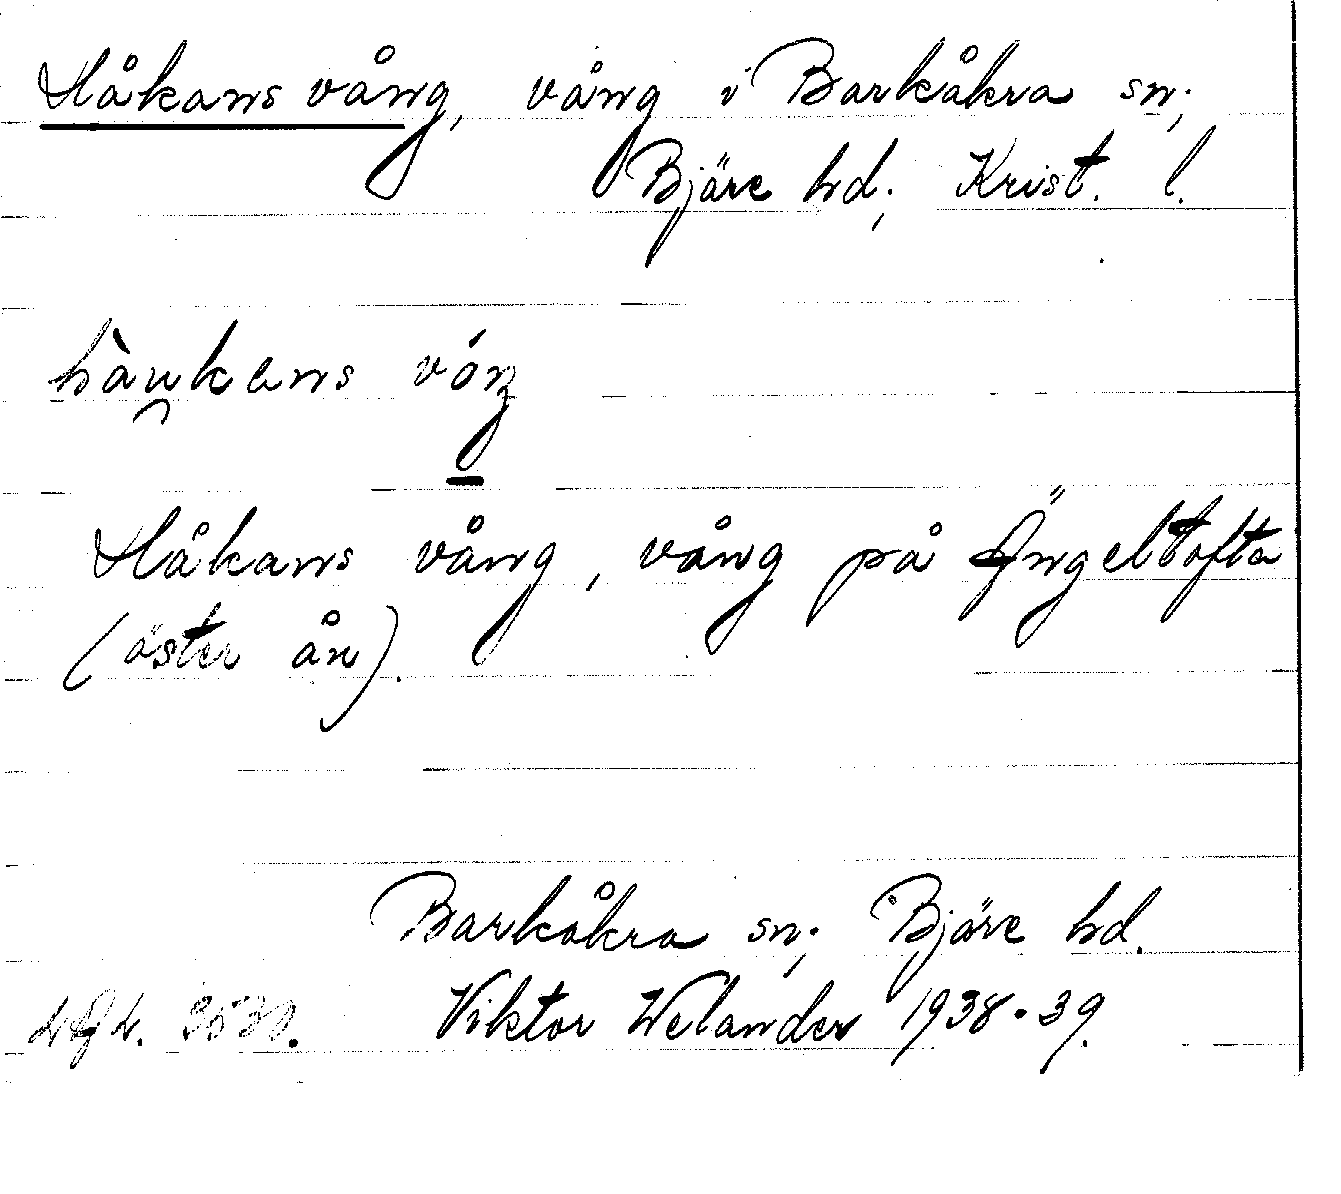 Håkans vång, vång i Barkåkra sn;
Bjäre hd; Krist. l.
hàu̯kans vóŋ
Håkans vång, vång på Ängeltofta
(öster ån).
Barkåkra sn; Bjäre hd.
Viktor Welander 1938-39.